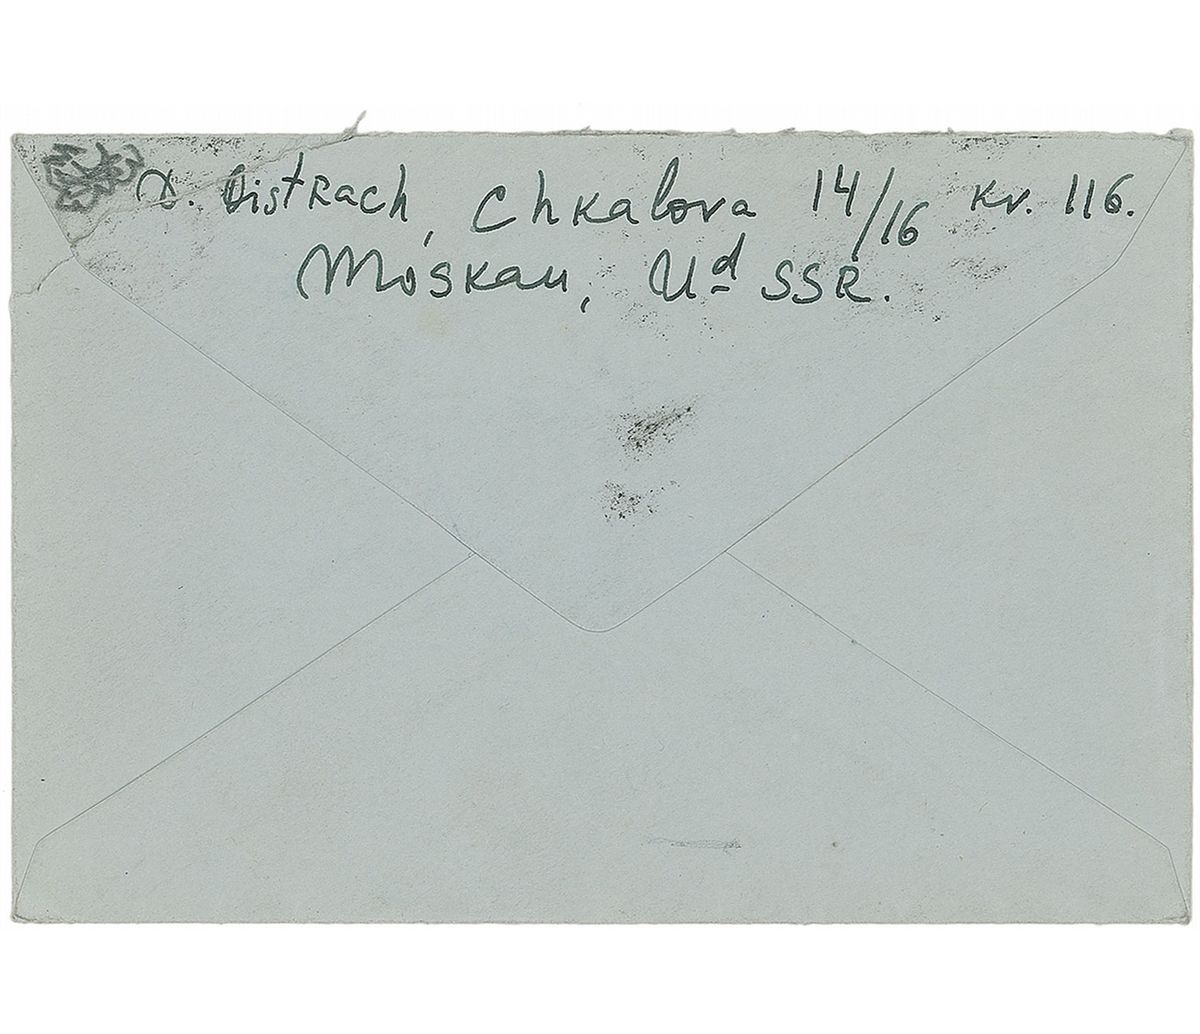 D. Oistrach, Chkalova 14/16 kv. 116.
Moskau, UdSSR.